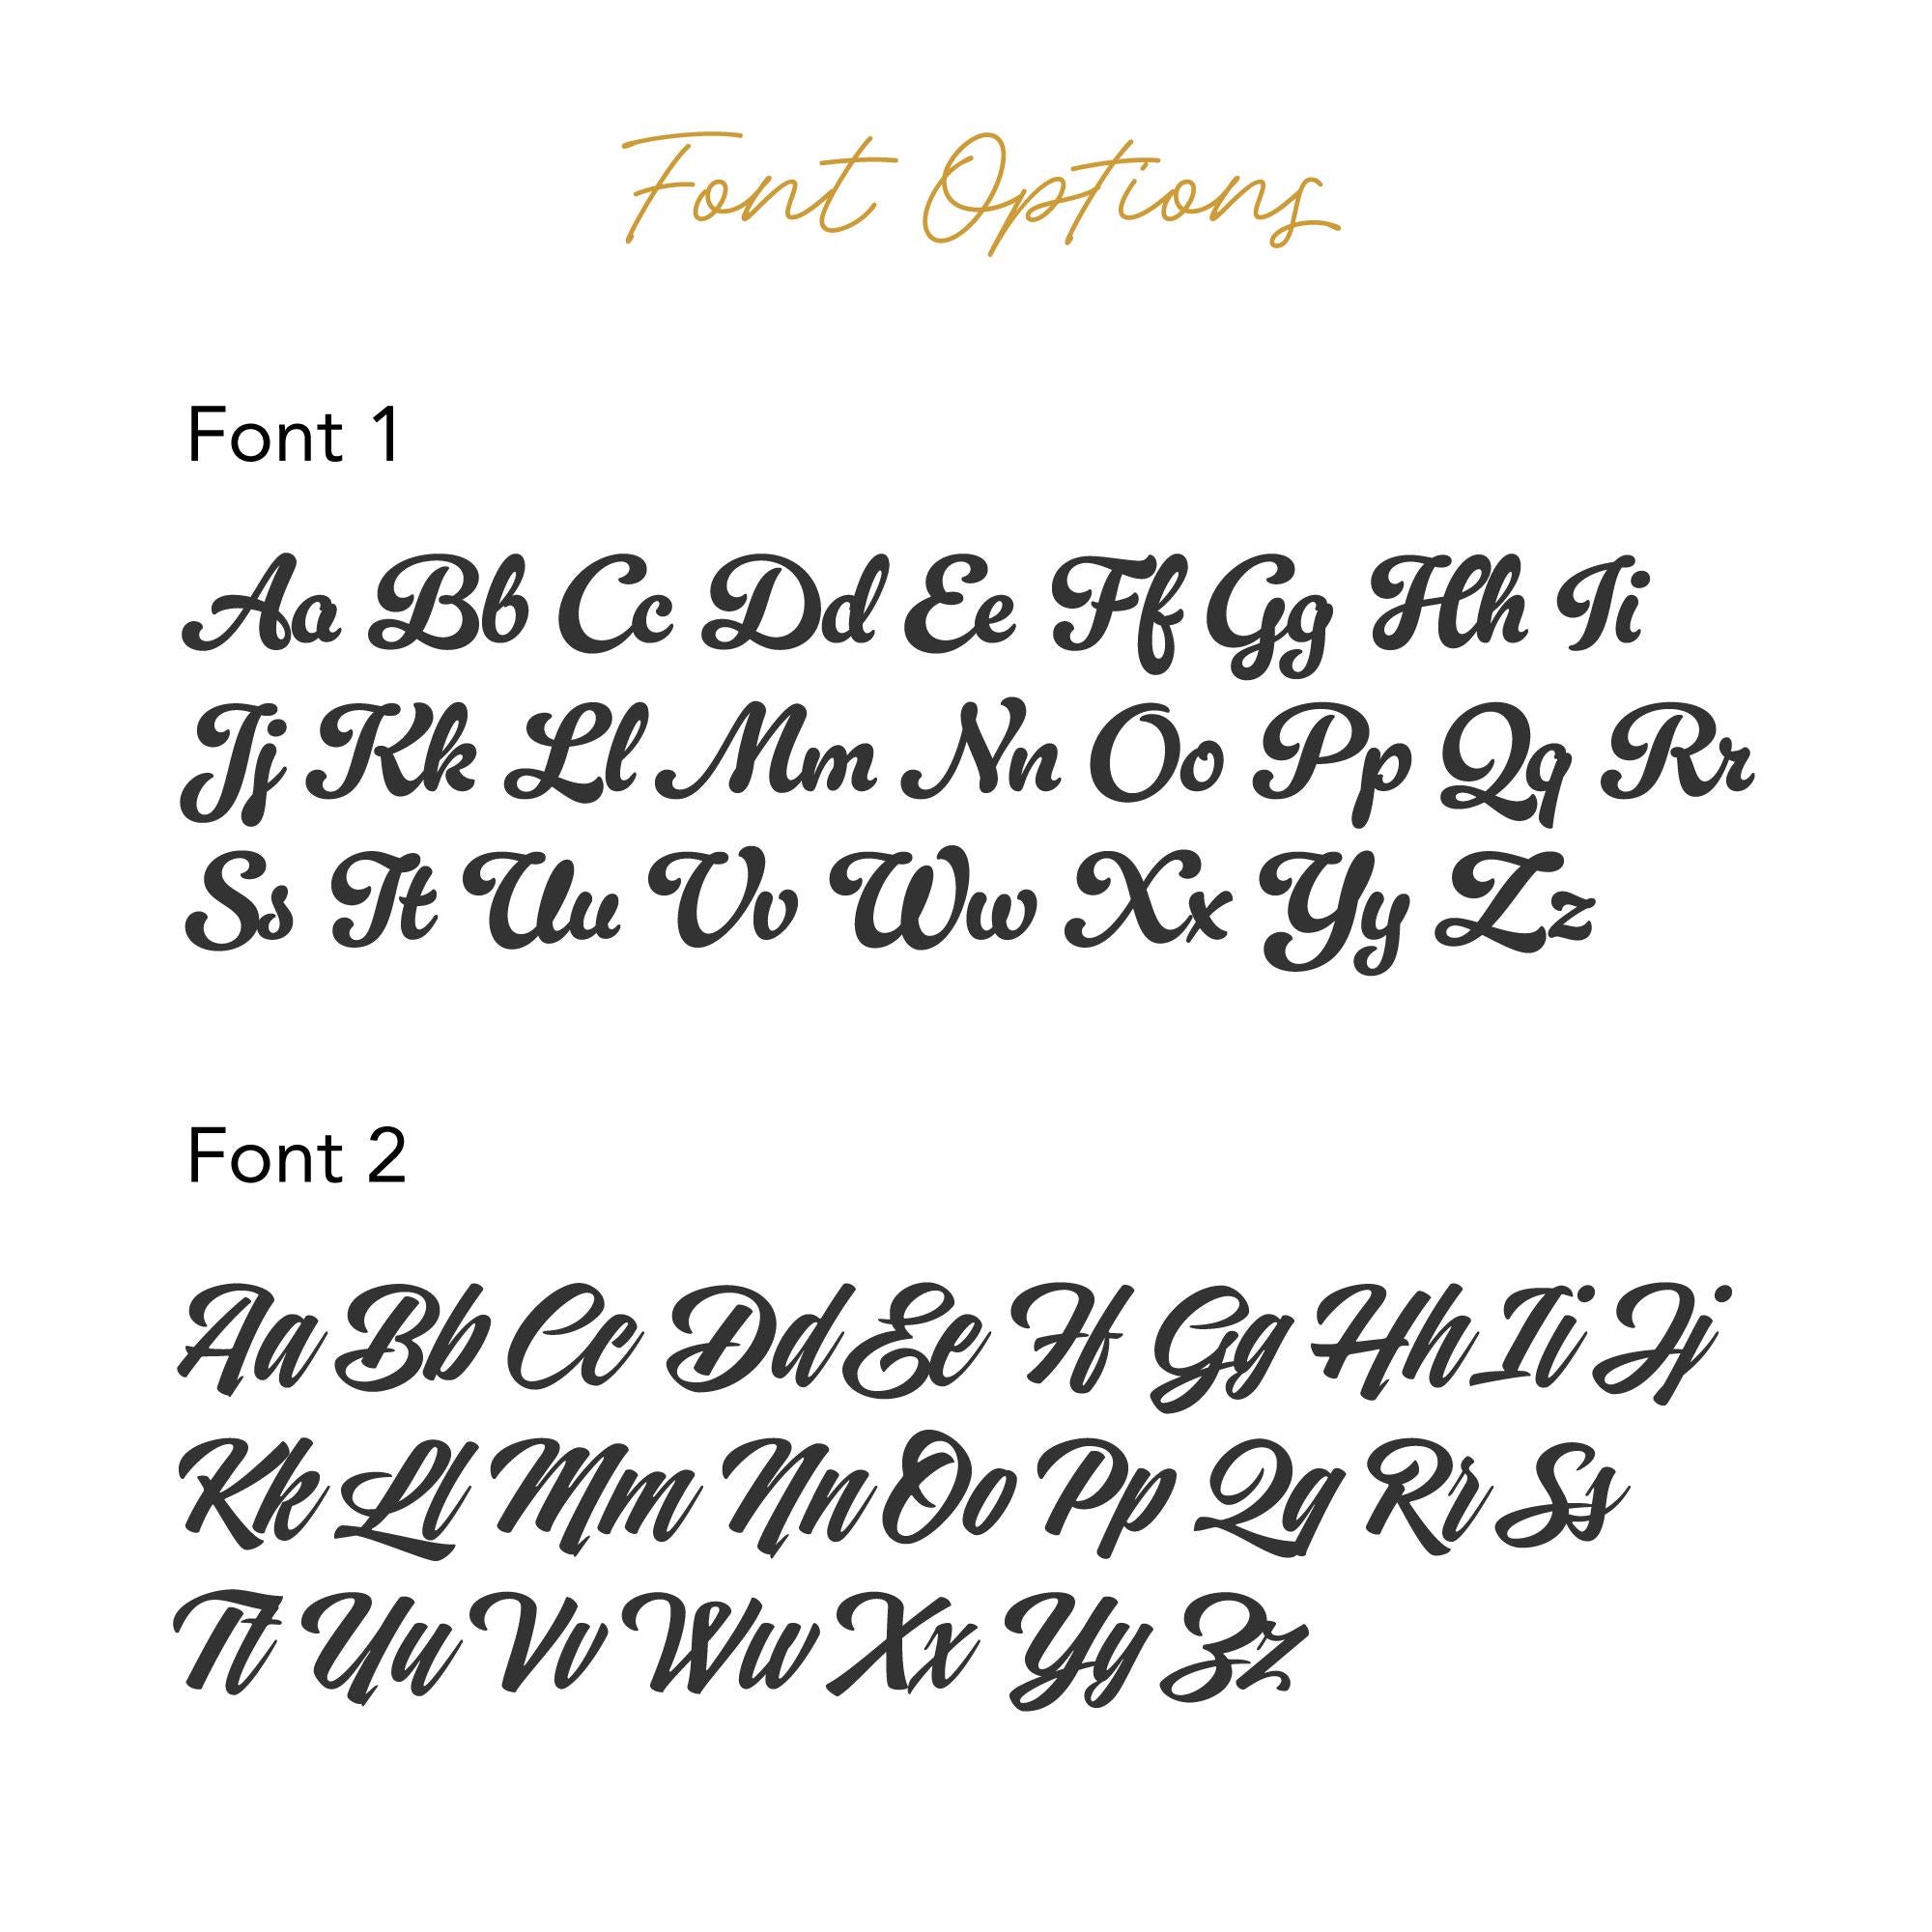 Font Options
Font 1
Aa Bb Cc Dd Ee Ff Gg Hh Ii
Jj Kk Ll Mm Nn Oo Pp Qq Rr
Ss Tt Uu Vv Ww Xx Yy Zz
Font 2
Aa Bb Cc Dd Ee Ff Gg Hh Ii Jj
Kk Ll Mm Nn Oo Pp Qq Rr Ss
Tt Uu Vv Ww Xx Yy Zz